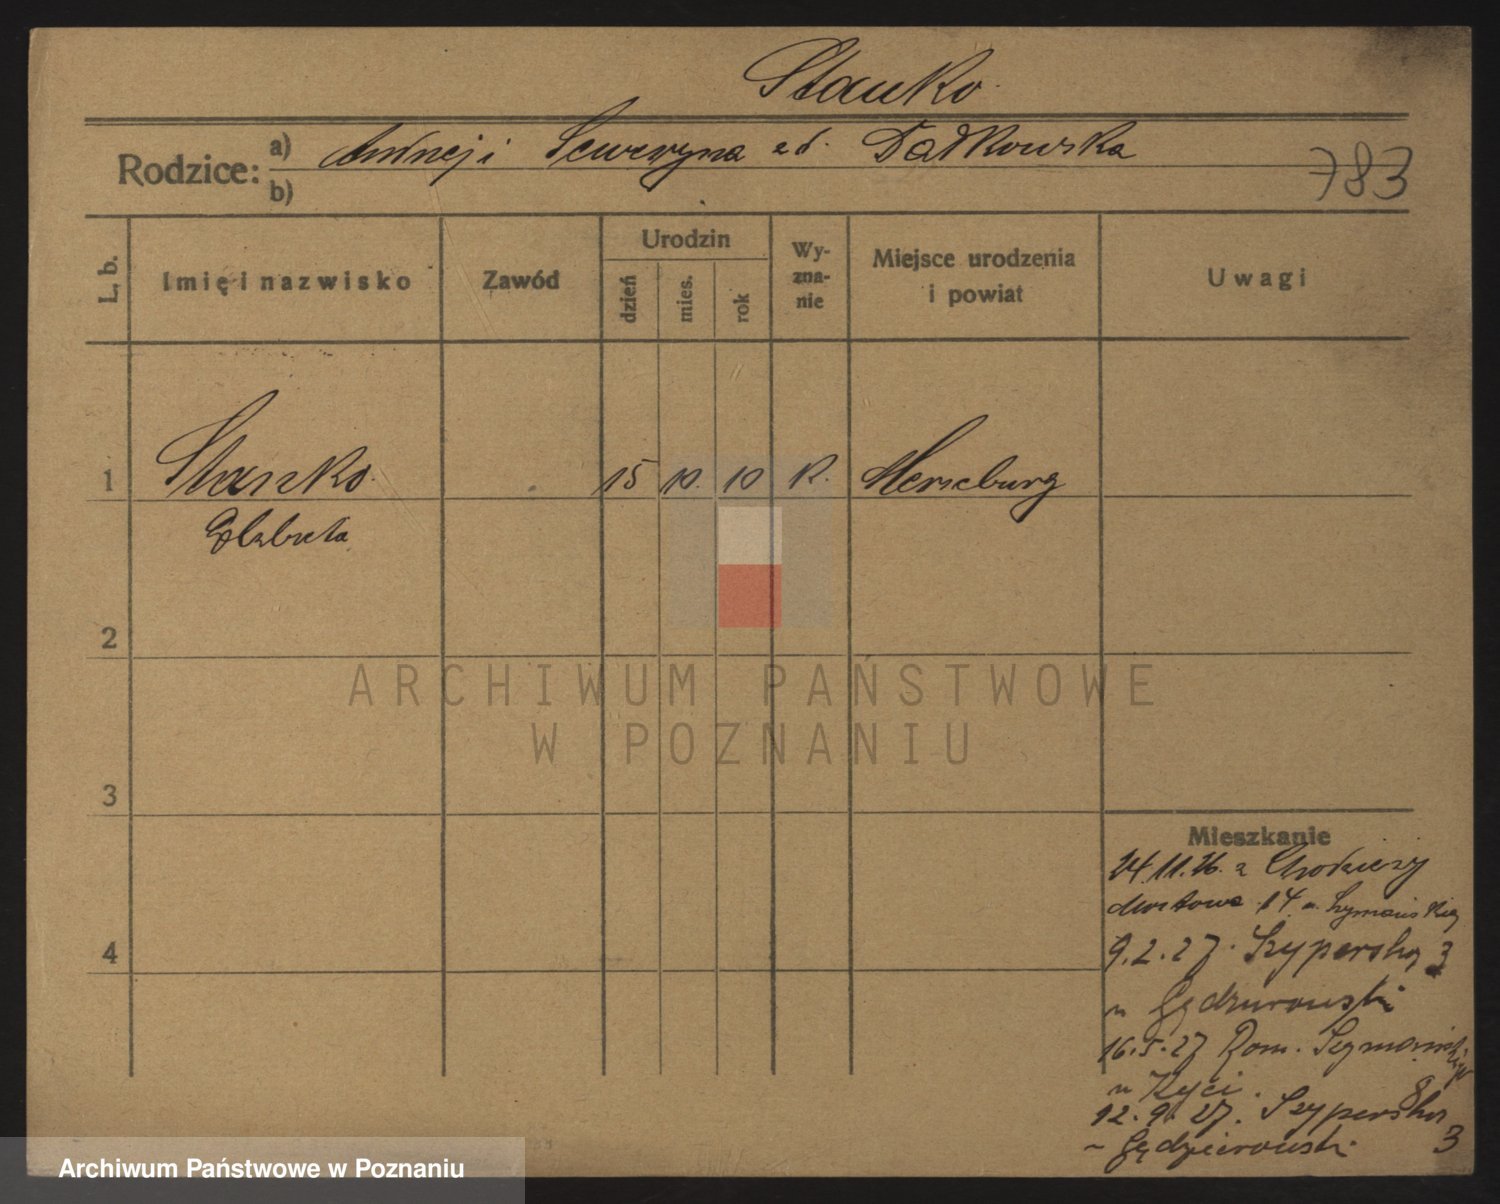 Stanko
Rodzice: a) Andrzej i Seweryna zd. Datkowska
b)
783
L. b.
Imię i nazwisko
Zawód
Urodzin
dzień
mies.
rok
Wy-
zna-
nie
Miejsce urodzenia
i powiat
Uwagi
1 Stanko 15 10. 10 R. Merseburg
Elżbieta
2
3
4
ARCHIWUM PAŃSTWOWE
W POZNANIU
Mieszkanie
24.11.26. z Chodzieży
Mostowa 14 u Szymańskiej
9.2.27. Szyperska 3
u
16.5.27 Rom. Szymańskiego
8
u
12.9.27. Szyperska
3
Archiwum Państwowe w Poznaniu